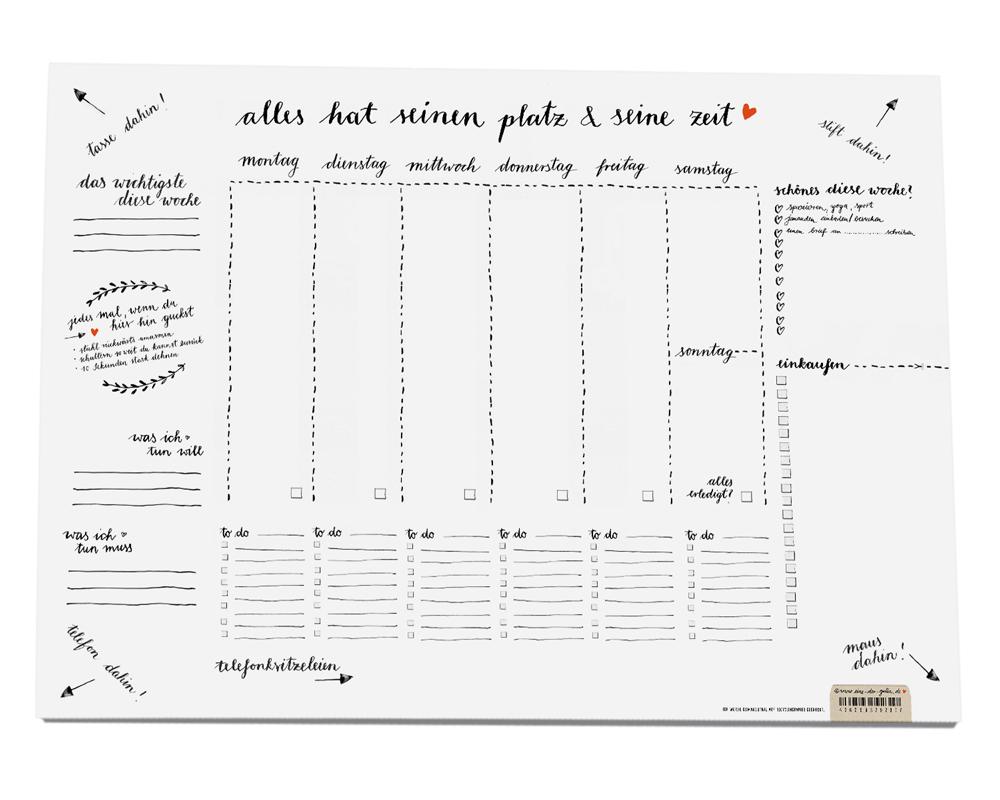 tasse dahin!
alles hat seinen platz & seine zeit
stift dahin!
montag dienstag mittwoch donnerstag freitag samstag
das wichtigste
diese woche
schönes diese woche?
spazieren, yoga, sport
jemanden einladen/besuchen
einen brief an ............ schreiben
jedes mal, wenn du
hier hin guckst
• stuhl rückwärts umarmen
• schultern so weit du kannst zurück
• 10 sekunden stark dehnen
sonntag
einkaufen
was ich
tun will
alles
erledigt?
to do to do to do to do to do to do
was ich
tun muss
telefon dahin!
telefonkritzeleien
maus
dahin!